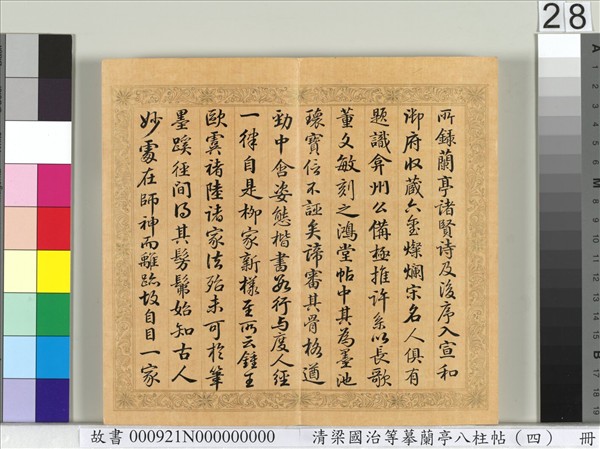 28
所錄蘭亭諸賢詩及後序入宣和
御府收藏六璽燦爛宋名人俱有
題識弇州公備極推許系以長歌
董文敏刻之鴻堂帖中其為墨池
瓌寶信不誣矣諦審其骨格遒
勁中含姿態楷書如行与度人經
一律自是柳家新樣至所云鍾王
歐虞褚陸諸家法殆未可於筆
墨蹊徑間得其髣髴始知古人
妙處在師神而離跡故自目一家
故書 000921N000000000 清梁國治等摹蘭亭八柱帖（四） 冊